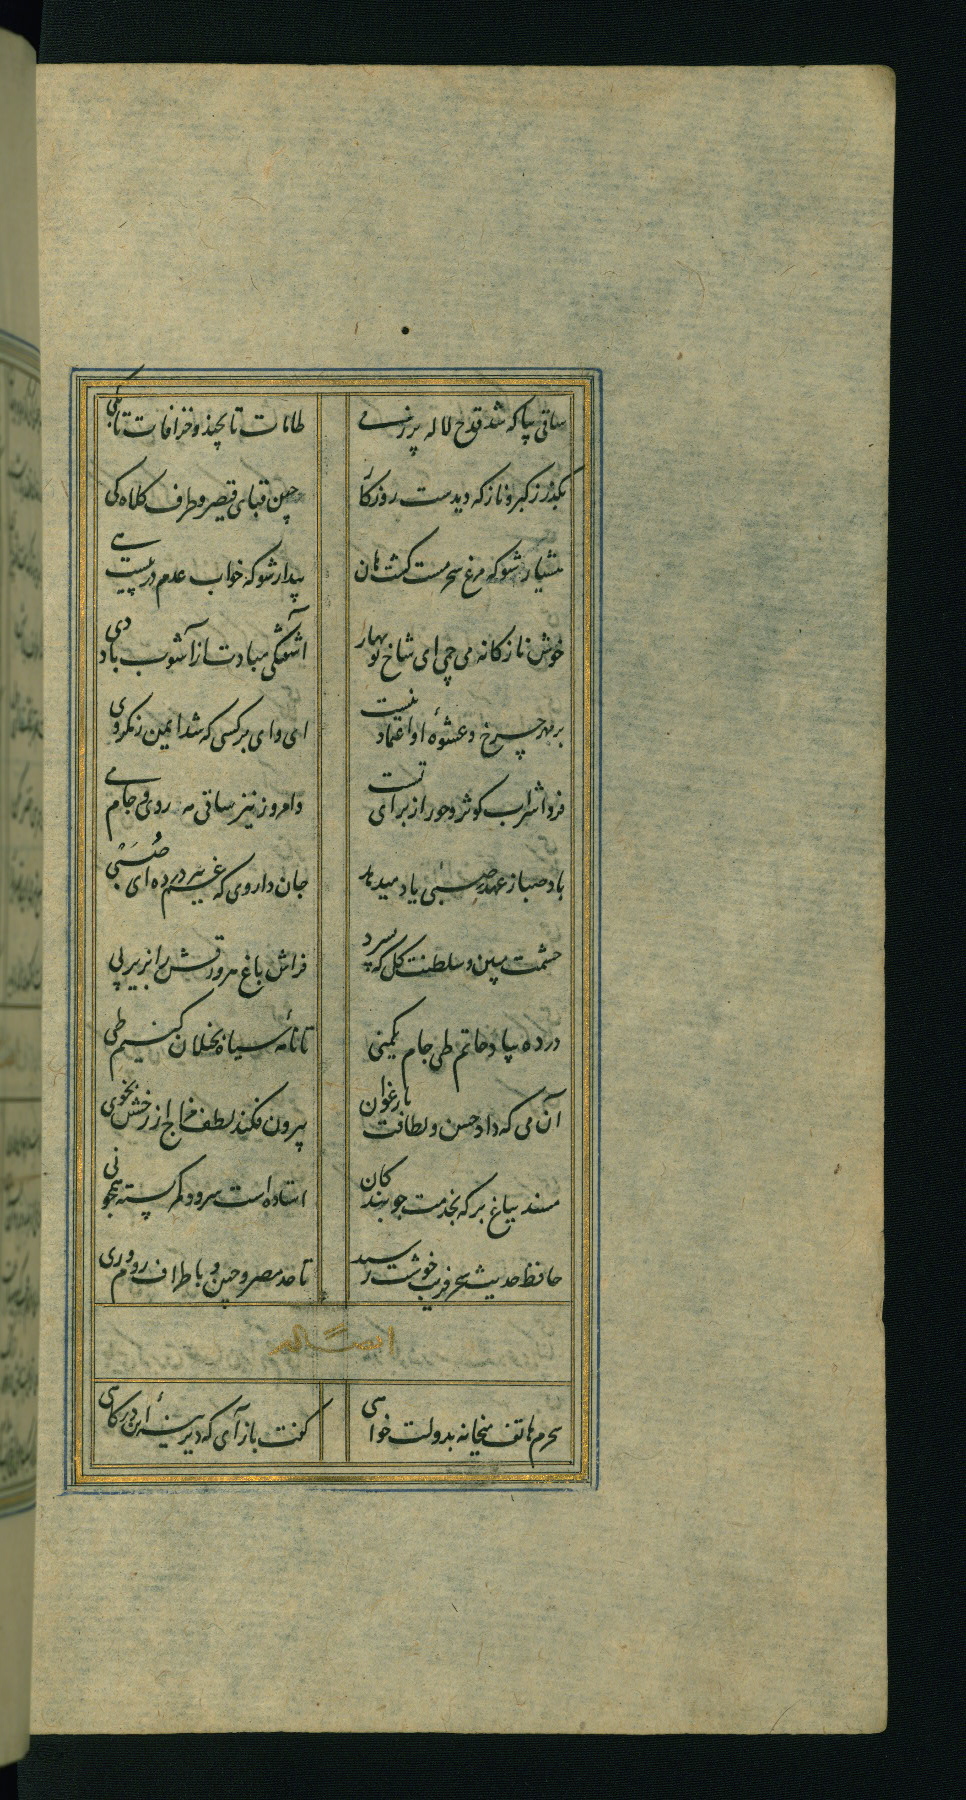 ساقی بیا که شد قدح لاله پر ز می
طامات تا بچند و خرافات تا بکی
بگذر ز کبر و ناز که دیدست روزگار
چین قبای قیصر و طرف کلاه کی
هشیار شو که مرغ سحر مست گشت هان
بیدار شو که خواب عدم در پیست هی
خوش نازکانه می چمی ای شاخ نوبهار
آشفتگی مبادت از آشوب باد دی
بر مهر چرخ و عشوه او اعتماد نیست
ای وای بر کسی که شد ایمن ز مکر وی
فردا شراب کوثر و حور از برای تست
و امروز نیز ساقی مه روی و جام می
باد صبا ز عهد صبی یاد میدهد
جان داروی که غم ببرد درده ای صبی
حشمت مبین و سلطنت گل که بسپرد
فراش باغ هر ورقش را بزیر پی
درده بیاد حاتم طی جام یکمنی
تا نامه سیاه بخیلان کنیم طی
آن می که داد حسن و لطافت بارغوان
بیرون فکند لطف مزاج از رخش بخوی
مسند بباغ بر که بخدمت چو بندگان
استاده است سرو و کمر بسته همچو نی
حافظ حدیث سحر فریب خوشت رسید
تا حد مصر و چین و باطراف روم و ری
سحرم هاتف میخانه بدولت خواهی
گفت باز آی که دیرینه این درگاهی